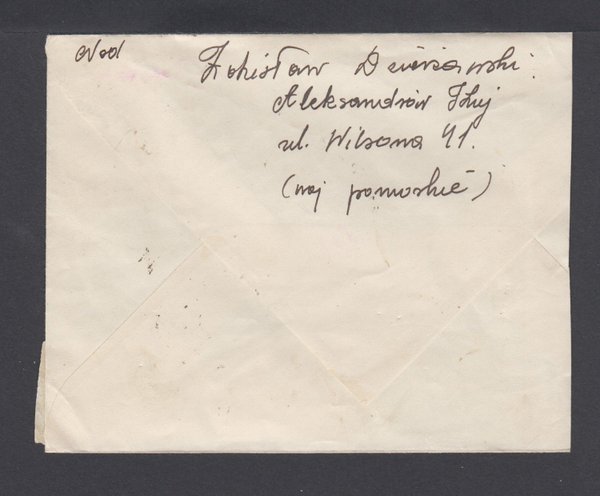 Nad Zdzisław Dzierżawski.
Aleksandrów Kuj
ul. Wilsona 41.
(woj pomorskie)